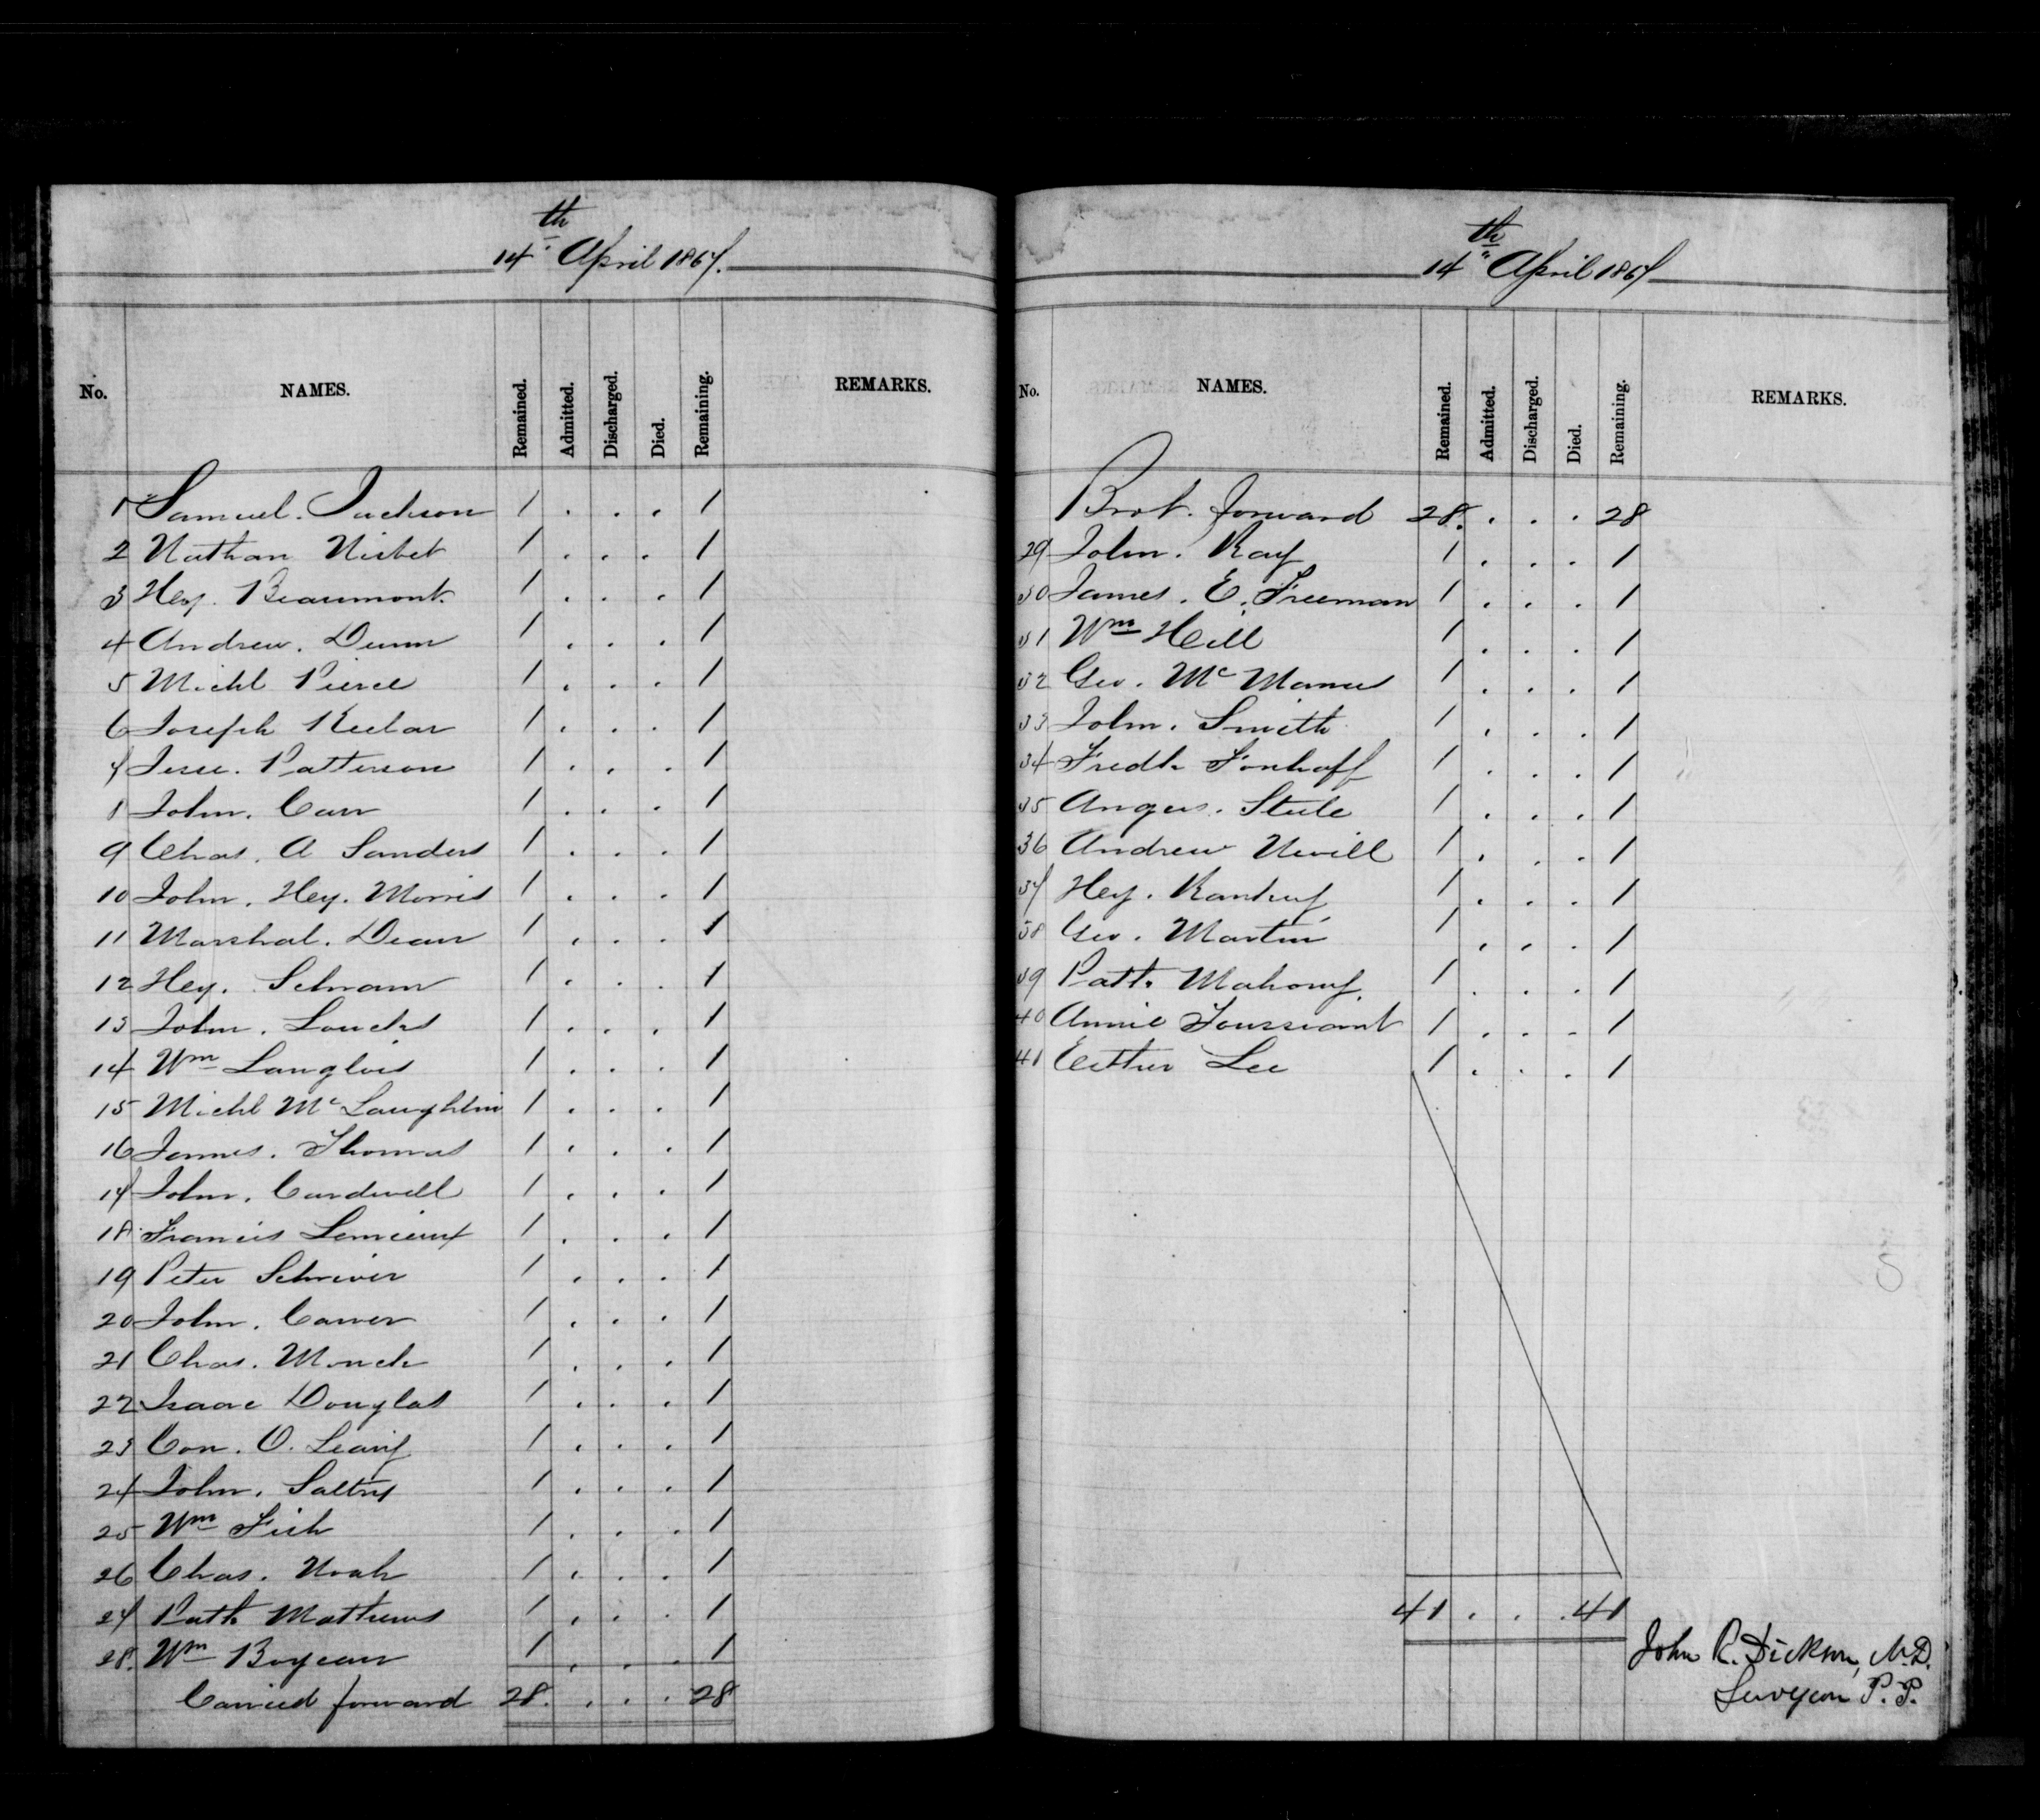 14th April 1867.
No. NAMES. Remained. Admitted. Discharged. Died. Remaining. REMARKS.
1 Samuel. Jackson 1 . . . 1
2 Nathan Nisbet 1 . . . 1
3 Hey. Beaumont. 1 . . . 1
4 Andrew. Dunn 1 . . . 1
5 Michl Pierce 1 . . . 1
6 Joseph Keebar 1 . . . 1
7 Jesse. Patterson 1 . . . 1
8 John. Carr 1 . . . 1
9 Chas. A Sanders 1 . . . 1
10 John. Hey. Morris 1 . . . 1
11 Marshal. Dean 1 . . . 1
12 Hey. Schram 1 . . . 1
13 John. Loucks 1 . . . 1
14 Wm Langlois 1 . . . 1
15 Michl McLaughlin 1 . . . 1
16 James. Thomas 1 . . . 1
17 John. Cardwell 1 . . . 1
18 Francis Lemieux 1 . . . 1
19 Peter Schriver 1 . . . 1
20 John. Carver 1 . . . 1
21 Chas. Monck 1 . . . 1
22 Isaac Douglas 1 . . . 1
23 Con. O. Leary 1 . . . 1
24 John. Saltry 1 . . . 1
25 Wm Fish 1 . . . 1
26 Chas. Noah 1 . . . 1
27 Patk Mathews 1 . . . 1
28. Wm Boyeau 1 . . . 1
Carried forward 28. . . . 28
14th April 1867
No. NAMES. Remained. Admitted. Discharged. Died. Remaining. REMARKS.
Brot. forward 28. . . . 28
29 John. Ray 1 . . . 1
30 James. E. Freeman 1 . . . 1
31 Wm Hill 1 . . . 1
32 Geo. McManus 1 . . . 1
33 John. Smith 1 . . . 1
34 Fredk Fonhoff 1 . . . 1
35 Angus. Steele 1 . . . 1
36 Andrew Nevill 1 . . . 1
37 Hey. 1 . . . 1
38 Geo. Martin 1 . . . 1
39 Patk. Mahony. 1 . . . 1
40 Annie Toussiant 1 . . . 1
41 Esther Lee 1 . . . 1
41 . . . 41
John R. Dickson, M.D.
Surgeon P. P.